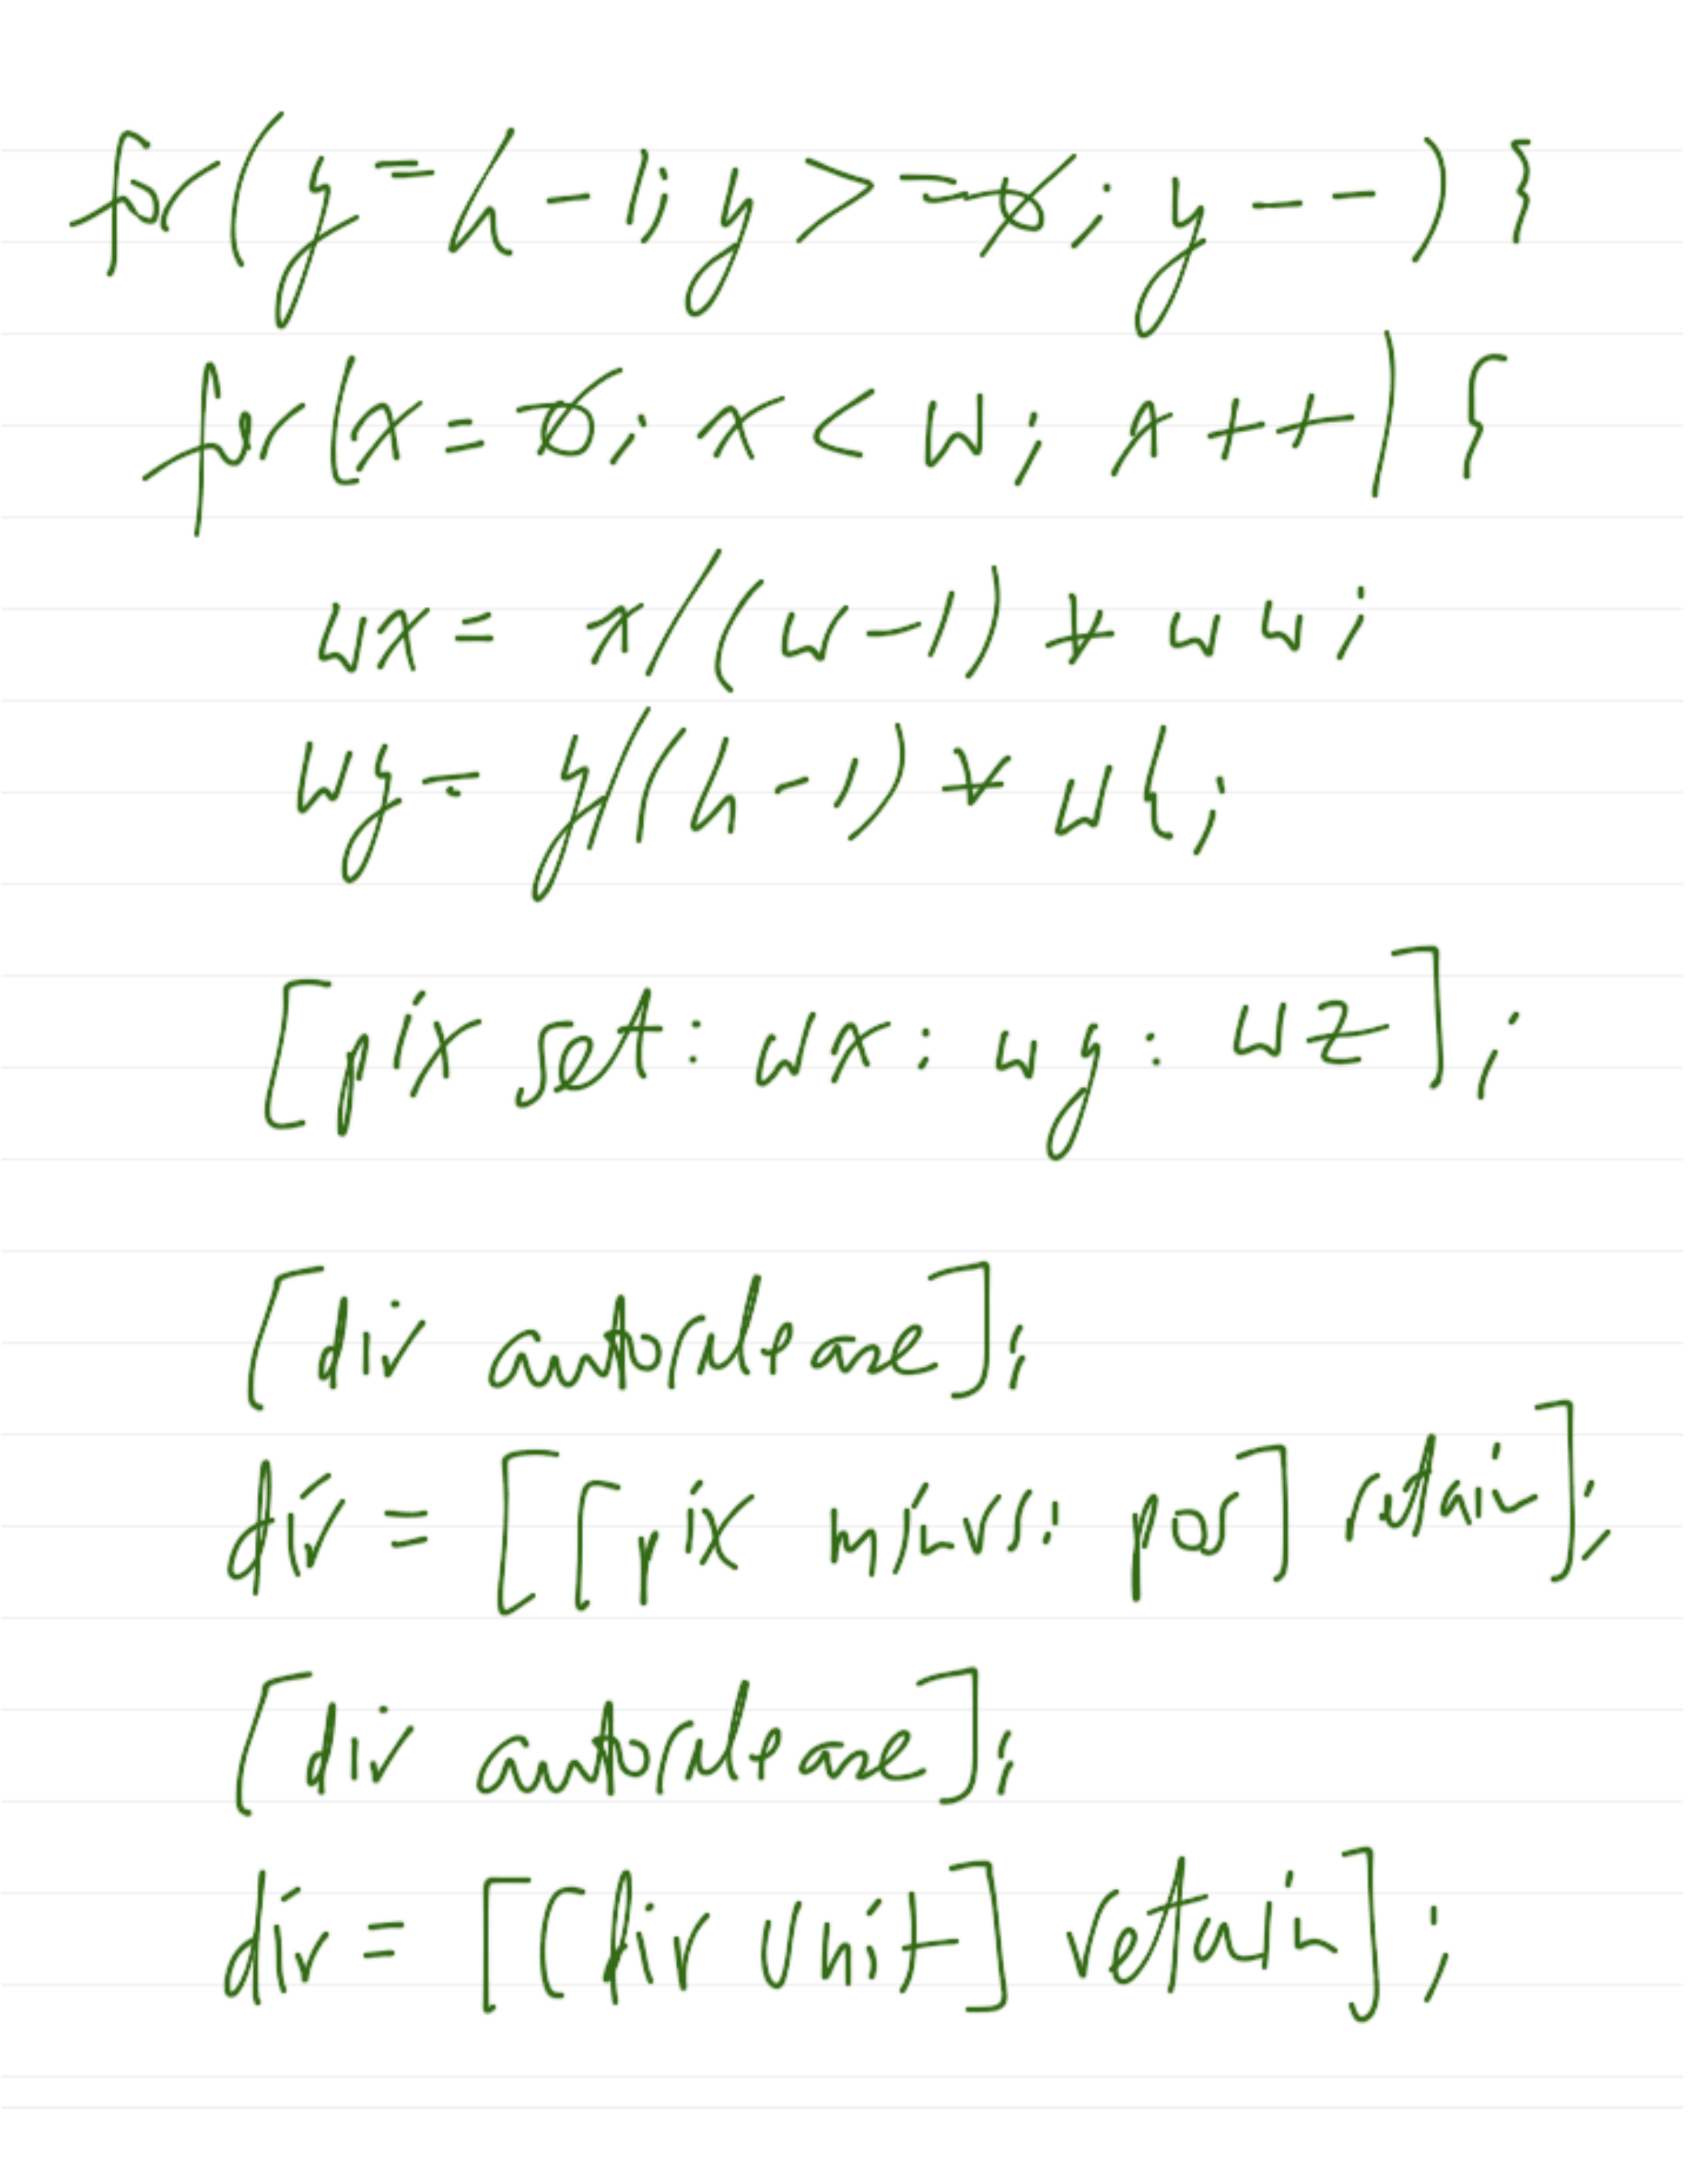 for(y=h-1;y>=0;y--){
for(x=0;x<w;x++){
wx=x/(w-1)*ww;
wy=y/(h-1)*wh;
[pix set:wx:wy:wz];
[dir autorelease];
dir=[[pix minus:pos] retain];
[dir autorelease];
dir=[[dir unit] retain];